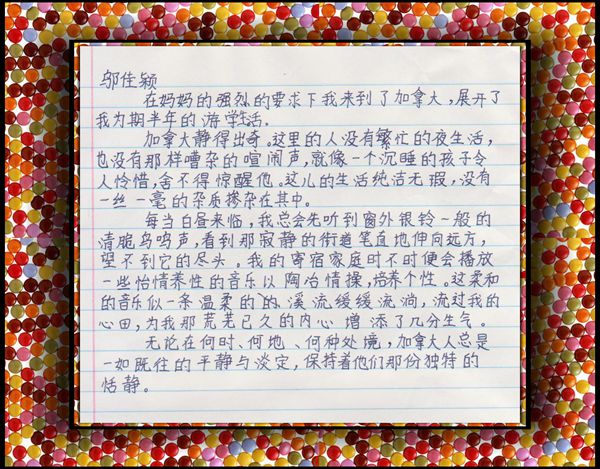 邬佳颖
在妈妈的强烈的要求下我来到了加拿大，展开了
我为期半年的游学生活.
加拿大静得出奇。这里的人没有繁忙的夜生活，
也没有那样嘈杂的喧闹声，就像一个沉睡的孩子令
人怜惜，舍不得惊醒他。这儿的生活纯洁无瑕，没有
一丝一毫的杂质掺杂在其中。
每当白昼来临，我总会先听到窗外银铃一般的
清脆鸟鸣声，看到那寂静的街道笔直地伸向远方，
望不到它的尽头。我的寄宿家庭时不时便会播放
一些怡情养性的音乐以陶冶情操，培养个性。这柔和
的音乐似一条温柔的的溪流缓缓流淌，流过我的
心田，为我那荒芜已久的内心增添了几分生气。
无论在何时、何地、何种处境，加拿大人总是
一如既往的平静与淡定，保持着他们那份独特的
恬静。